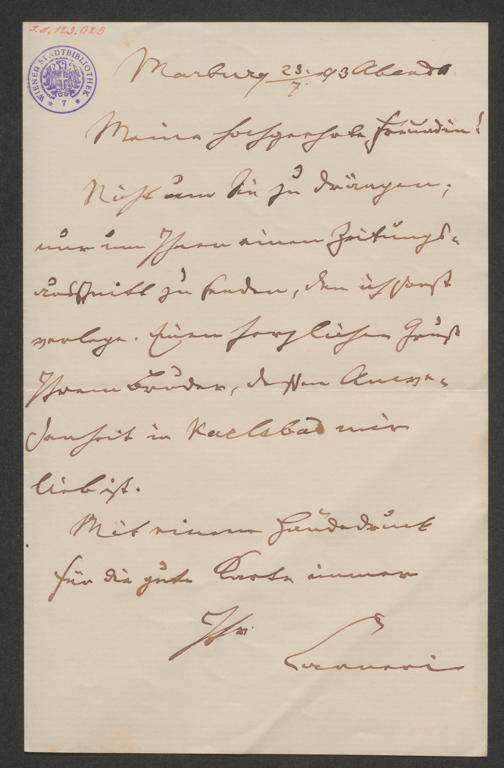 I.N. 123.023
WIENER STADTBIBLIOTHEK
7
Marburg 23./7. 93 Abends
Meine hochgeehrte Freundin!
Nicht um Sie zu drängen;
nur um Ihnen einen Zeitungs-
ausschnitt zu senden, den ich sonst
verlege. Einen herzlichen Gruß
Ihrem Bruder, dessen Anwe-
senheit in Karlsbad mir
lieb ist.
Mit einem Händedruck
für die gute Karte immer
Ihr
Carneri